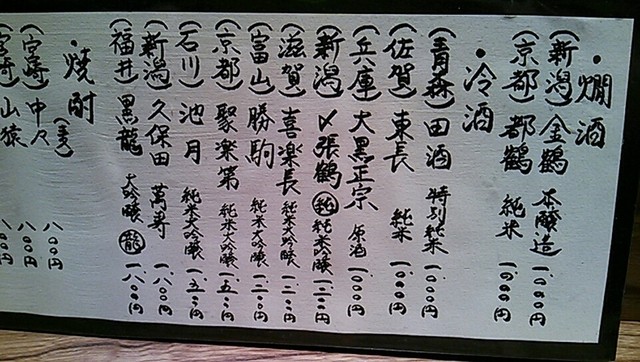 ・燗酒
（新潟）金鶴 本醸造 一、〇〇〇円
（京都）都鶴 純米 一、〇〇〇円
・冷酒
（青森）田酒 特別純米 一、〇〇〇円
（佐賀）東長 純米 一、〇〇〇円
（兵庫）大黒正宗 原酒 一、〇〇〇円
（新潟）〆張鶴 純 純米吟醸 一、二〇〇円
（滋賀）喜楽長 純米大吟醸 一、二〇〇円
（富山）勝駒 純米吟醸 一、二〇〇円
（京都）聚楽第 純米大吟醸 一、五〇〇円
（石川）池月 純米大吟醸 一、五〇〇円
（新潟）久保田 萬寿 一、八〇〇円
（福井）黒龍 大吟醸 龍 一、八〇〇円
・焼酎
（宮崎）中々（麦） 八〇〇円
（宮崎）山猿 八〇〇円